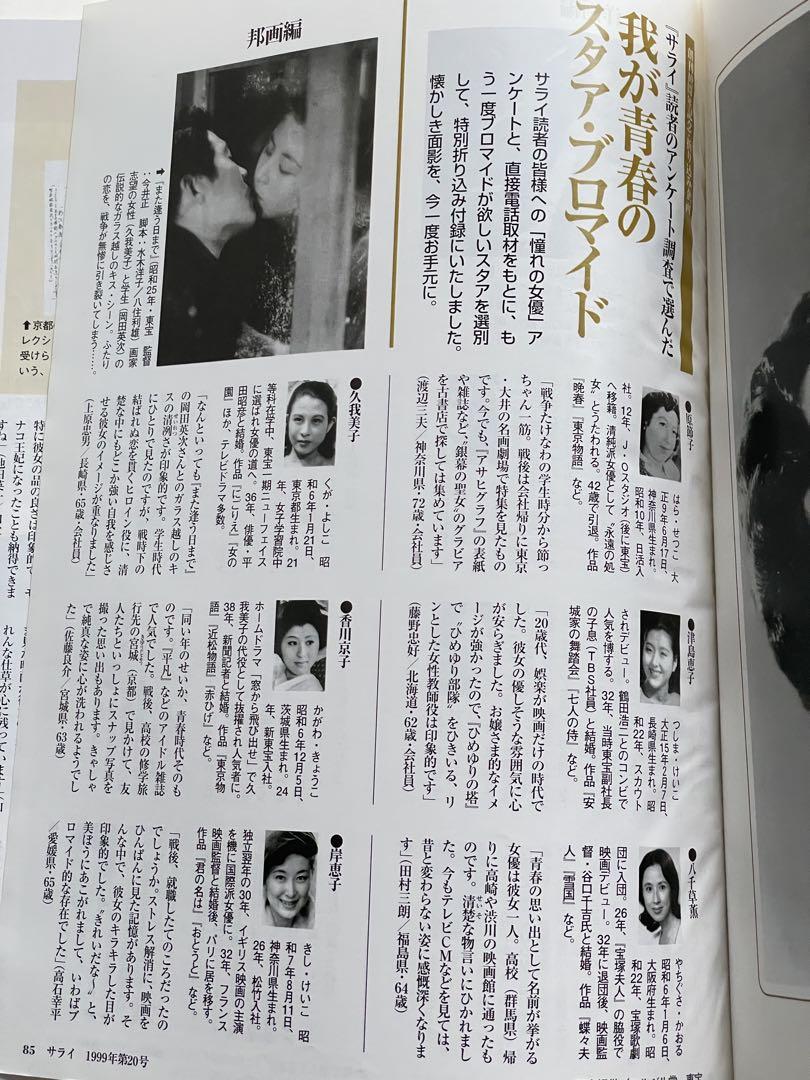 『サライ』読者のアンケート調査で選んだ
我が青春の
スタア・ブロマイド
サライ読者の皆様への「憧れの女優」ア
ンケートと、直接電話取材をもとに、も
う一度ブロマイドが欲しいスタアを選別
して、特別折り込み付録にいたしました。
懐かしき面影を、今一度お手元に。
邦画編
➡「また逢う日まで」(昭和25年・東宝 監督
:今井正 脚本:水木洋子/八住利雄)画家
志望の女性(久我美子)と学生(岡田英次)の
伝説的なガラス越しのキス・シーン。ふたり
の恋を、戦争が無惨に引き裂いてしまう……。
●原節子
はら・せつこ 大
正9年6月17日、
神奈川県生まれ。
昭和10年、日活入
社。12年、J・Oスタジオ(後に東宝)
へ移籍。清純派女優として〝永遠の処
女〟とうたわれる。42歳で引退。作品
「晩春」「東京物語」など。
「戦争たけなわの学生時分から節っ
ちゃん一筋。戦後は会社帰りに東京
・大井の名画劇場で特集を見たもの
です。今でも、『アサヒグラフ』の表紙
や雑誌など〝銀幕の聖女〟のグラビア
を古書店で探しては集めています」
(渡辺三夫/神奈川県・72歳・会社員)
●津島恵子
つしま・けいこ
大正15年2月7日、
長崎県生まれ。昭
和22年、スカウト
されデビュー。鶴田浩二とのコンビで
人気を博する。32年、当時東宝副社長
の子息(TBS社員)と結婚。作品「安
城家の舞踏会」「七人の侍」など。
「20歳代、娯楽が映画だけの時代で
した。彼女の優しそうな雰囲気に心
が安らぎました。お嬢さま的なイメ
ージが強かったので、『ひめゆりの塔』
で〝ひめゆり部隊〟をひきいる、リ
ンとした女性教師役は印象的です」
(藤野忠好/北海道・62歳・会社員)
●八千草薫
やちぐさ・かおる
昭和6年1月6日、
大阪府生まれ。昭
和22年、宝塚歌劇
団に入団。26年、「宝塚夫人」の脇役で
映画デビュー。32年に退団後、映画監
督・谷口千吉氏と結婚。作品「蝶々夫
人」「雪国」など。
「青春の思い出として名前が挙がる
女優は彼女一人。高校(群馬県)帰
りに高崎や渋川の映画館に通ったも
のです。清楚な物言いにひかれまし
せいそ
た。今もテレビCMなどを見ては、
昔と変わらない姿に感慨深くなりま
す」(田村三朗/福島県・64歳)
●久我美子
くが・よしこ 昭
和6年1月21日、
東京都生まれ。21
年、女子学習院中
等科在学中、東宝一期ニューフェイス
に選ばれ女優の道へ。36年、俳優・平
田昭彦と結婚。作品「にごりえ」「女の
園」ほか、テレビドラマ多数。
「なんといっても『また逢う日まで』
の岡田英次さんとのガラス越しのキ
スの清冽さが印象的です。学生時代
せいれつ
にひとりで見たのですが、戦時下の
結ばれぬ恋を貫くヒロイン役に、清
楚な中にもどこか強い自我を感じさ
せる彼女のイメージが重なりました」
(上原忠男/長崎県・65歳・会社員)
●香川京子
かがわ・きょうこ
昭和6年12月5日、
茨城県生まれ。24
年、新東宝入社。
ホームドラマ「窓から飛び出せ」で久
我美子の代役として抜擢され人気者に。
38年、新聞記者と結婚。作品「東京物
語」「近松物語」「赤ひげ」など。
「同い年のせいか、青春時代そのも
のです。『平凡』などのアイドル雑誌
で人気でした。戦後、高校の修学旅
行先の宮城(京都)で見かけて、友
人たちといっしょにスナップ写真を
撮った思い出もあります。きゃしゃ
で純真な姿に心が洗われるようでし
た」(佐藤良介/宮城県・63歳)
●岸恵子
きし・けいこ 昭
和7年8月11日、
神奈川県生まれ。
26年、松竹入社。
独立翌年の30年、イギリス映画の主演
を機に国際派女優に。32年、フランス
映画監督と結婚後、パリに居を移す。
作品「君の名は」「おとうと」など。
「戦後、就職したてのころだったの
でしょうか。ストレス解消に、映画を
ひんぱんに見た記憶があります。そ
んな中で、彼女のキラキラした目が
印象的でした。〝きれいだな~〟と、
美ぼうにあこがれまして、いわばブ
ロマイド的な存在でした」(高石幸平
/愛媛県・65歳)
85 サライ 1999年第20号
⬆京都
レクシ
受けら
いう、
特に彼女の品の良さは印象的で、モ
ナコ王妃になったことも納得できま